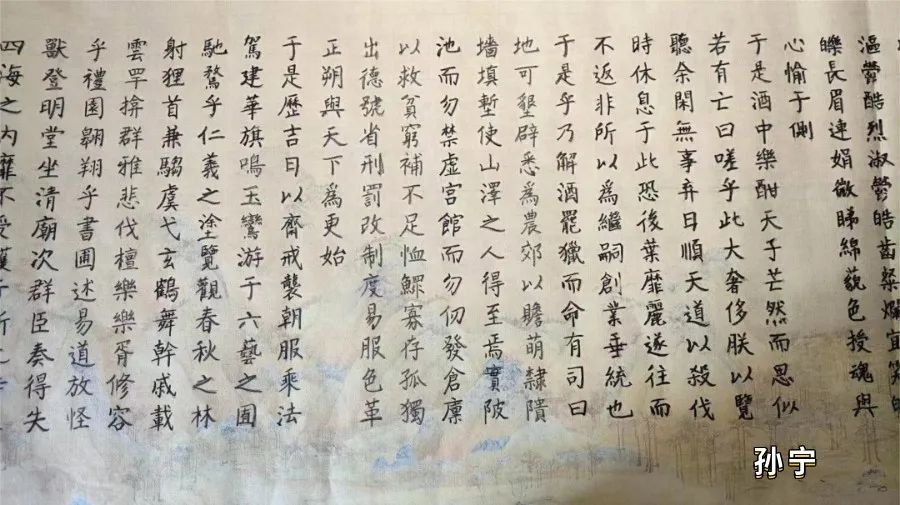 漚鬱酷烈淑鬱皓齒粲爛宜笑的
皪長眉連娟微睇綿藐色授魂與
心愉于側
于是酒中樂酣天子芒然而思似
若有亡曰嗟乎此大奢侈朕以覽
聽余閑無事弃日順天道以殺伐
時休息于此恐後葉靡麗遂往而
不返非所以為繼嗣創業垂統也
于是乎乃解酒罷獵而命有司曰
地可墾辟悉為農郊以贍萌隸隤
墻填塹使山澤之人得至焉實陂
池而勿禁虛宮館而勿仞發倉廩
以救貧窮補不足恤鰥寡存孤獨
出德號省刑罰改制度易服色革
正朔與天下為更始
于是歷吉日以齊戒襲朝服乘法
駕建華旗鳴玉鸞游于六藝之囿
馳騖乎仁義之塗覽觀春秋之林
射狸首兼騶虞弋玄鶴舞幹戚載
雲罕揜群雅悲伐檀樂樂胥修容
乎禮園翱翔乎書圃述易道放怪
獸登明堂坐清廟次群臣奏得失
四海之內靡不受獲于
孙宁